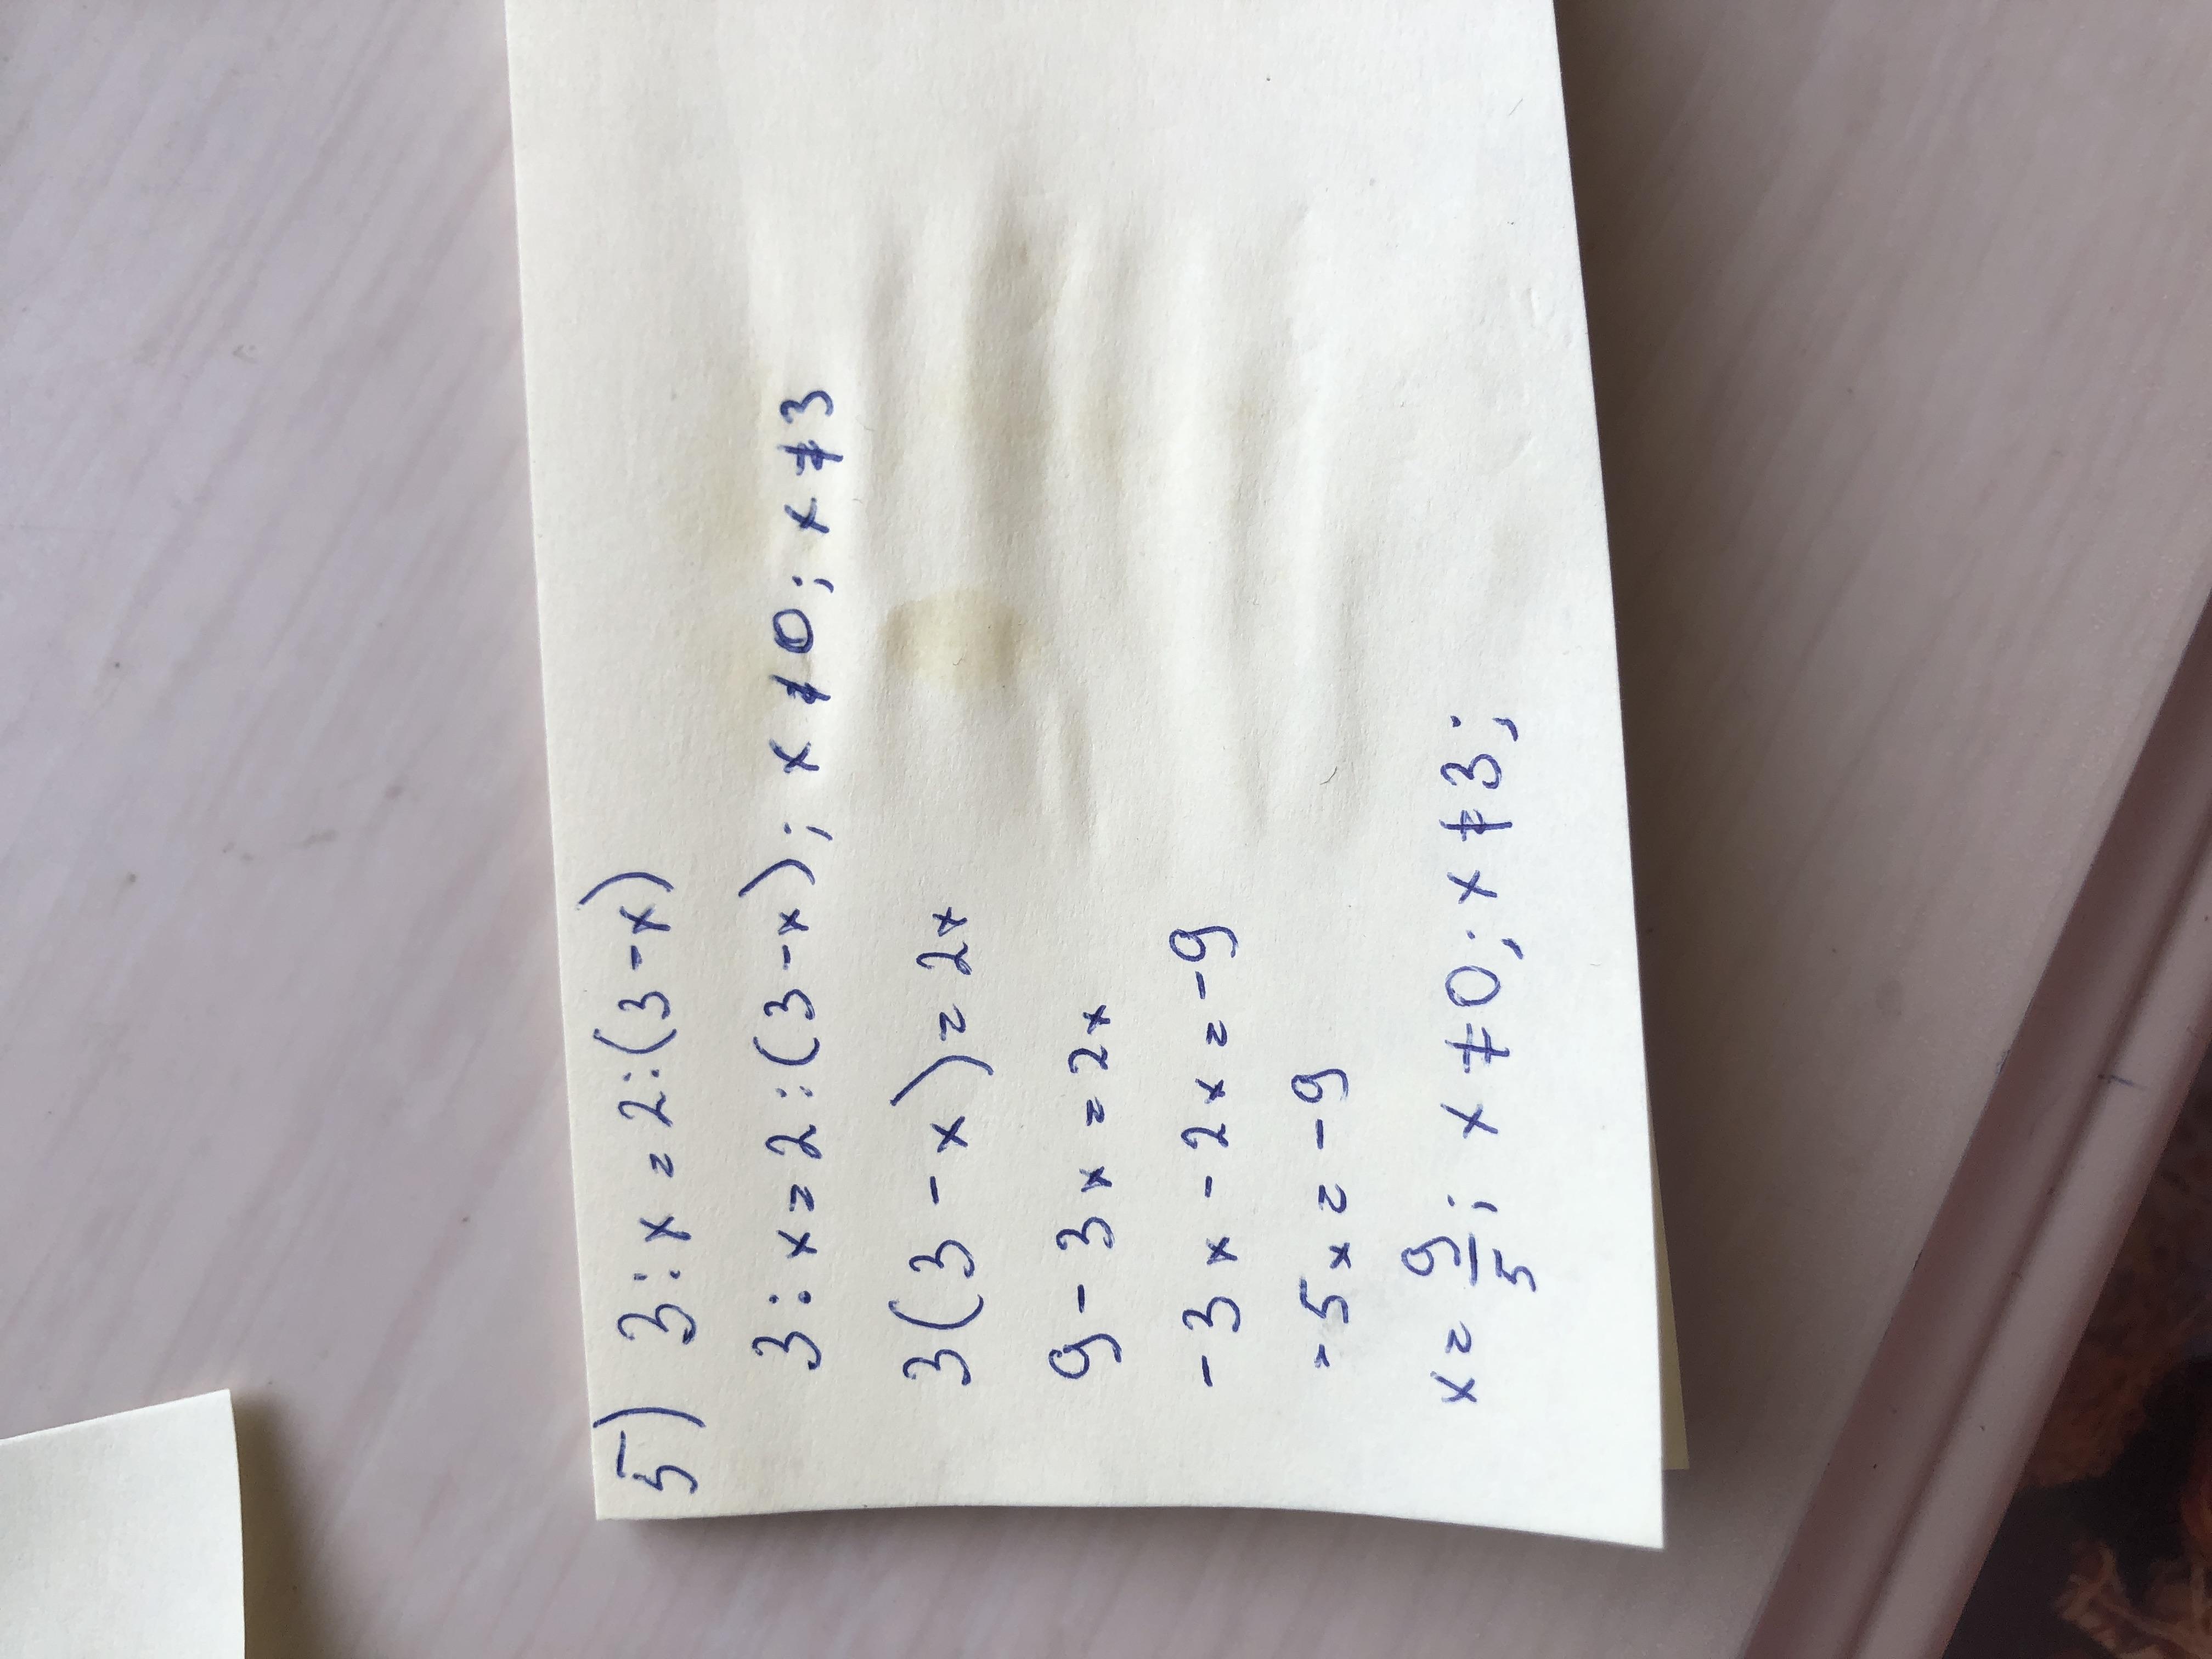 5) 3:x=2:(3-x)
3:x=2:(3-x); x≠0; x≠3
3(3-x)=2x
9-3x=2x
-3x-2x=-9
-5x=-9
x=9/5; x≠0; x≠3;